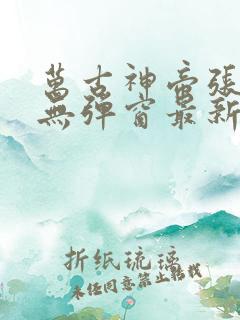 萬古神帝張
無彈窗最新
折纸琉璃
未经同意禁止转载